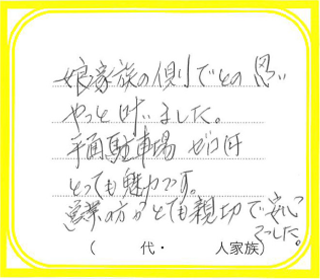 娘家族の側でとの思い
やっと叶いました。
平面駐車場 ゼロ円
とっても魅力です。
営業の方がとても親切で安心
でした。
( 代・ 人家族)